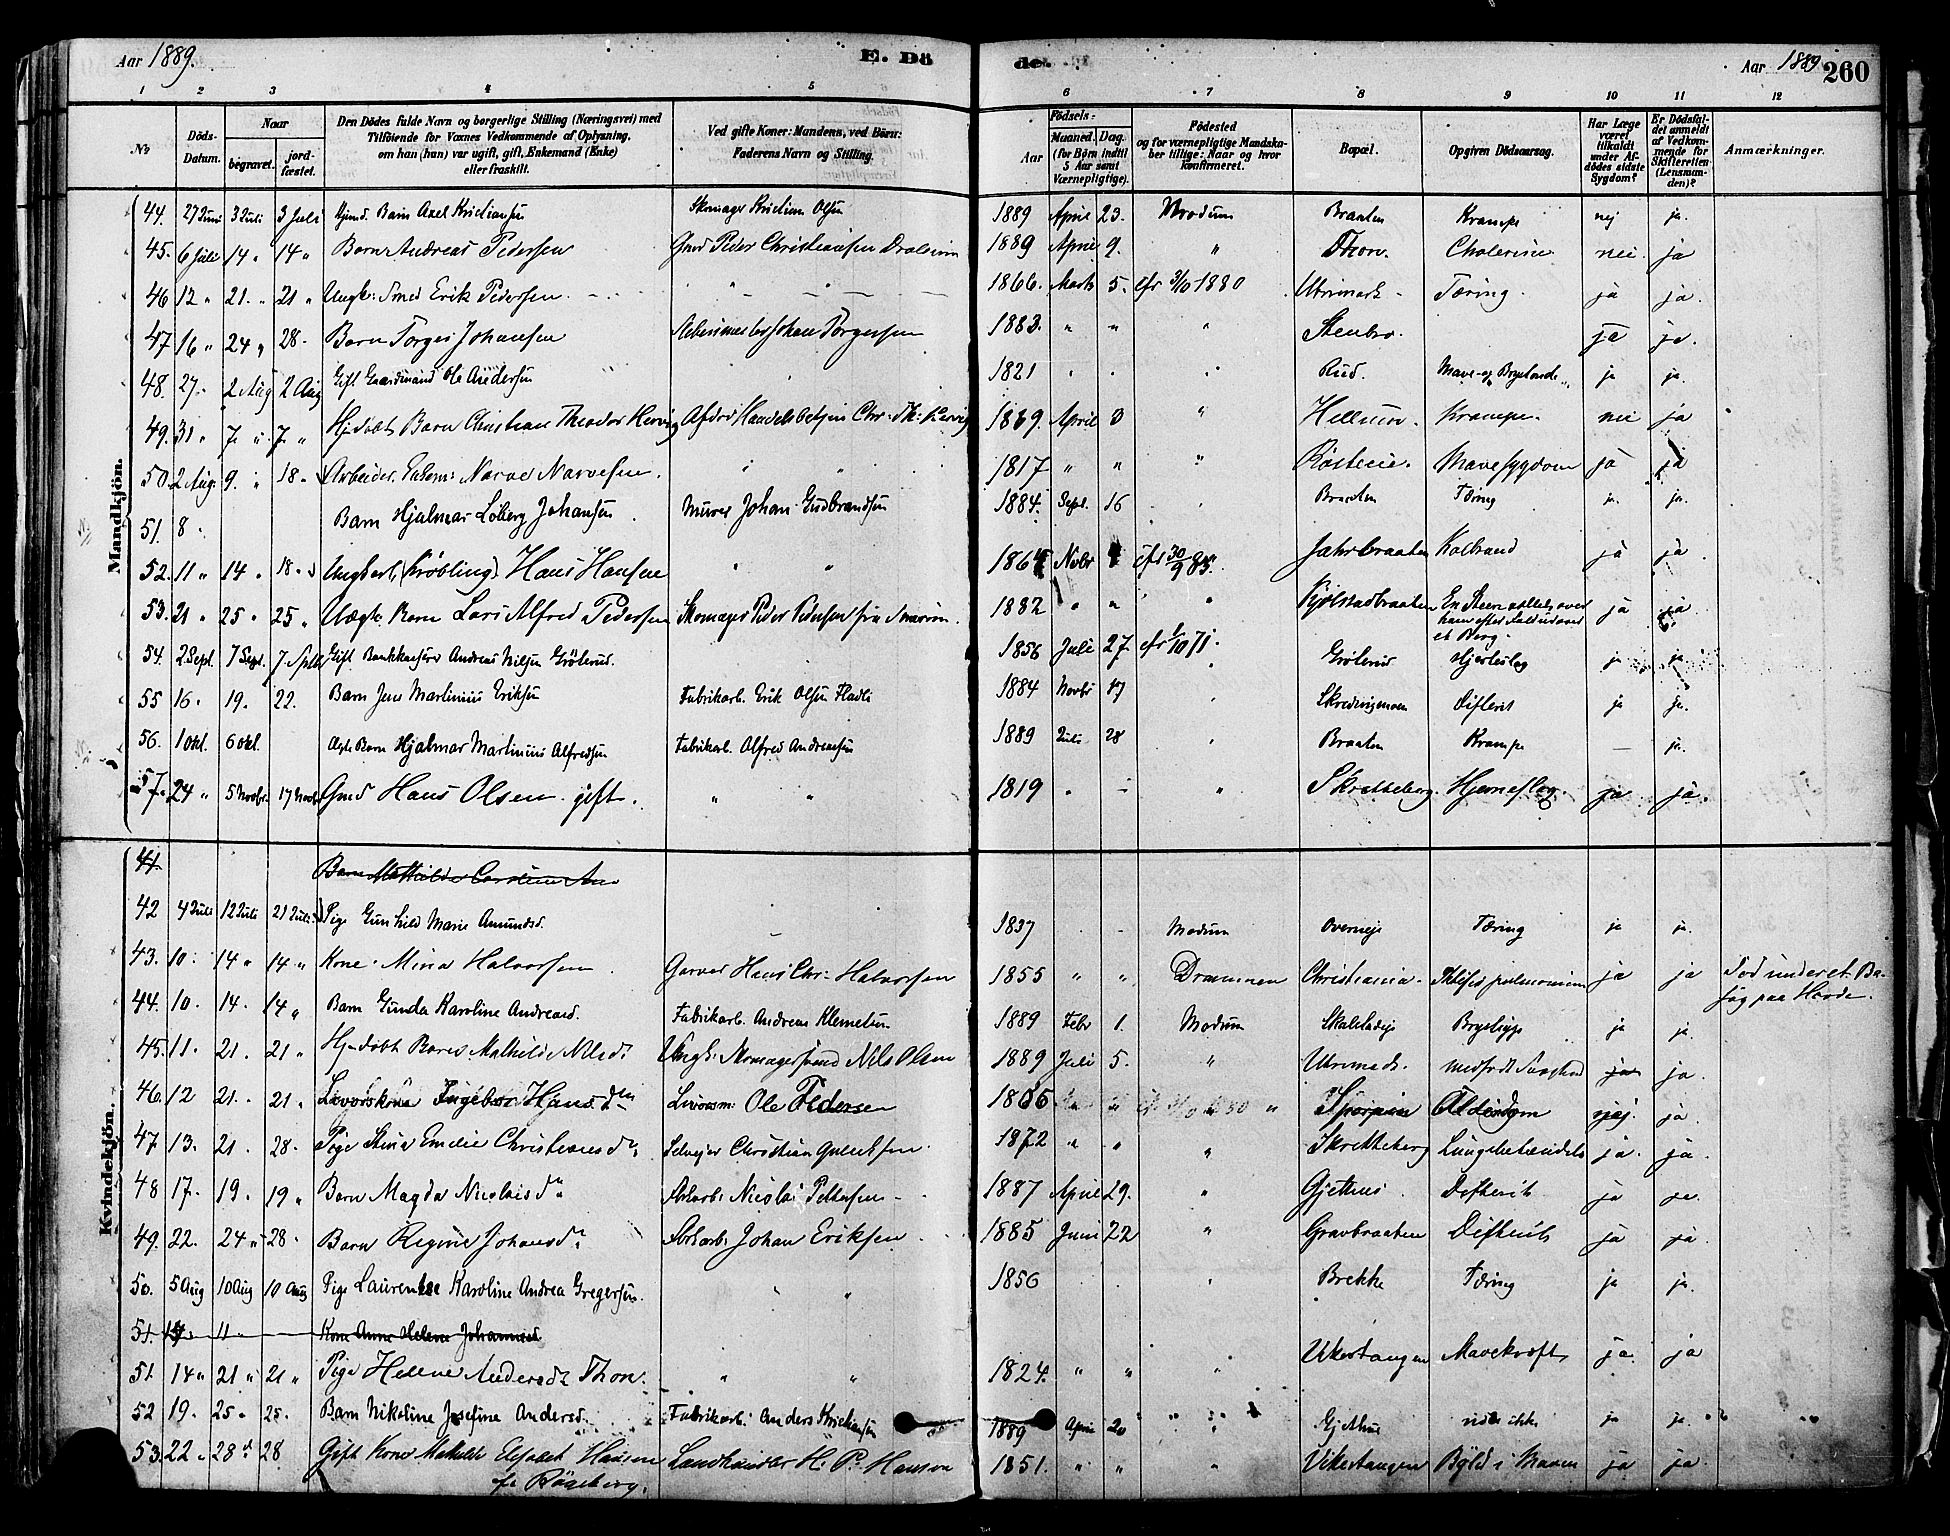 Aar 1889. E. Dö de. Aar 1889 260
1 2 3 4 5 6 7 8 9 10 11 12
No
Döds-Datum.
Naar
begravet.
jord-fæstet.
Den Dödes fulde Navn og borgerlige Stilling (Næringsvei) med
Tilföiende for Voxnes Vedkommende af Oplysning,
om han (han) var ugift, gift, Enkemand (Enke)
eller fraskilt.
Ved gifte Koner: Mandens, ved Börn:
Faderens Navn og Stilling.
Födsels:
Aar
Maaned. Dag.
(for Börn indtil
5 Aar samt
Værnepligtige).
Födested
og for værnepligtige Mandska-
ber tillige: Naar og hvor
konfirmeret.
Bopæl.
Opgiven Dödsaarsag.
Har Læge
været
tilkaldt
under Af-
dödes sidste
Sygdom?
Er Dödsfal-
det anmeldt
af Vedkom-
mende for
Skifteretten
(Lensman-
den)?
Anmærkninger.
Mandkjön.
44. 27 Juni 3 Juli 3 Juli Hjemd. Barn Axel Kristiansen Skomager Kristian Olsen 1889 April 23. Modum Braaten Krampe nej ja.
45. 6 Juli 14 " 14 " Barn Andreas Pedersen Gmd Peder Christiansen 1889 April 9. " Thon. Cholerine nei ja
46 12 " 21. " 21 " Ungk: Smed Erik Pedersen. " 1866. Marts 5. cfr 3/10 1880 Utrimark Tæring. ja ja.
47 16 " 24 " 28. Barn Torger Johansen Johan Torgersen 1883. " " " Stenbro. ja ja.
48. 27. 2 Aug 2 Aug Gift Gaardmand Ole Andersen " 1821 " " " Rud. Mave- og ja ja.
49. 31 " 7. " 7 " Hj. døbt Barn Christian Theodor Hervig Afdød Handelsbetjen Chr. Th. Hervig 1889. April " Hellum. Krampe. nei ja
50. 2 Aug. 9. " 18 " Arbeider Enkem: Narve Narvesen. " 1817 " " " Mavesygdom ja ja
51. 8 " Barn Hjalmar Loberg Johansen Murer Johan Gudbrandsen 1884. Sept. 16 " Braaten Tæring ja. ja.
52. 11 " 14 " 18 " Ungkarl (Krøbling) Hans Hansen " " 1864 Novbr cfr 30/9 83. Jahrbraaten Koldbrand ja ja
53. 21 " 25 " 25 " Uægt. Barn Lars Alfred Pedersen Skomager Peder Pedersen fra 1882 " " " Kjølstadbraaten En Steen væltet over
ham efter Fald udover
et Berg. ja ja.
54. 2 Sept. 7 Sept. 7 Septb Gift Bankkasserer Andreas Nilsen Grøterud. 1856 Juli 27. cfr 1/10 71. Grøterud Hjerteslag ja ja
55 16 " 19. 22. Barn Jens Martinius Eriksen Fabrikarb. Erik Olsen Fladli 1884 Novbr 17 " Skredvigmoen Difterit ja ja.
56. 1 Okt. 6 Okt. Ægte Barn Hjalmar Martinius Alfredsen Fabrikarb. Alfred Andreassen 1889 Juli 28 " Braaten Krampe — ja.
57. 24 " 5 Novbr. 17 Novbr Gmd Hans Olsen. gift. " " 1819 " — " Skretteberg. Hjerneslag. ja ja.
Kvindekjön.
41. Barn Mathilde Caroline An
42 4 Juli 12 Juli 21 Juli Pige Gunhild Marie Amundsd. 1837 " " Modum Overneje Tæring ja ja.
43. 10. 14 " 14 " Kone Mina Halvorsen Garver Hans Chr: Halvorsen 1855 " " Drammen Christiania. Phthisis pulmonum ja ja Død under et Be-
søg paa
44. 10. 14. 14 " Barn Gunda Karoline Andreasd. Fabrikarb. Andreas Klemetsen 1889 Febr 1. Modum ja ja.
45. 11. 21. 21 " Hj. døbt Barn Mathilde Nilsd. Ungk: Skomagersvend Nils Olsen 1889 Juli 5. " Utrimark. medfødt Svaghed ja ja.
46. 12 21. 21 " Ingebor Hansd. Ole Pedersen Alderdom nej. ja
47 13. 21. 28. Pige Stina Emilie Christiansd. Selvejer Christian 1872 " " " Skretteberg Lungebetændelse ja. ja.
48 17. 19. 19 " Barn Magda Nicolaisd. Nicolai Pettersen 1887 April 29. " Gjethus. Difterit ja ja.
49. 22. 24 " 28. Barn Regine Johansd. Johan Eriksen 1885 Juni 22 " Gravbraaten Difterit ja ja
50. 5 Aug 10 Aug 10 Aug Pige Laurentze Karoline Andrea Gregersen. " 1856 " Brekke Tæring ja ja.
51. 11 " Kone Anne Helene Johannesd.
51. 14 " 21 " 21 " Pige Helene Andersdt Thon. " " 1824. " " " Vikestangen Mavekræft ja. ja
52 19. 25. 25. Barn Nikoline Josefine Andersd. Fabrikarb. Anders Kristiansen 1889 April 20 " Gjethus vides ikke ja ja. "
53. 22 " 28 " 28 Gift Kone Mathilde Elisabet Hansen
f. Røseberg. Landhandler H. P. Hansen 1851. " " " Vikestangen Byld i Maven ja ja.